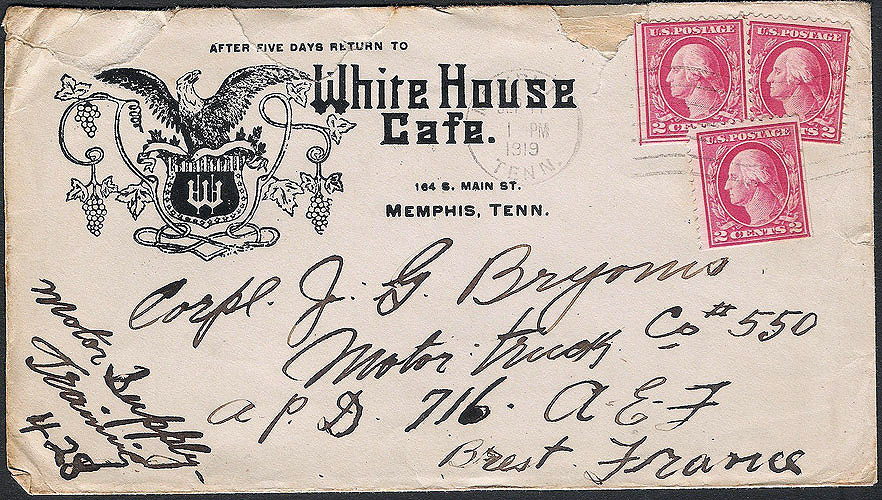 AFTER FIVE DAYS RETURN TO
White House
Cafe.
164 S. MAIN ST.
MEMPHIS, TENN.
W
1 PM
1919
TENN.
U.S. POSTAGE
2 CENTS
U.S. POSTAGE
CENTS 2
U.S. POSTAGE
2 CENTS 2
Corpl. J. G. Bryoms
Motor truck Co # 550
A P D 716. A. E. F
Brest. France
Motor Supply
Train
428